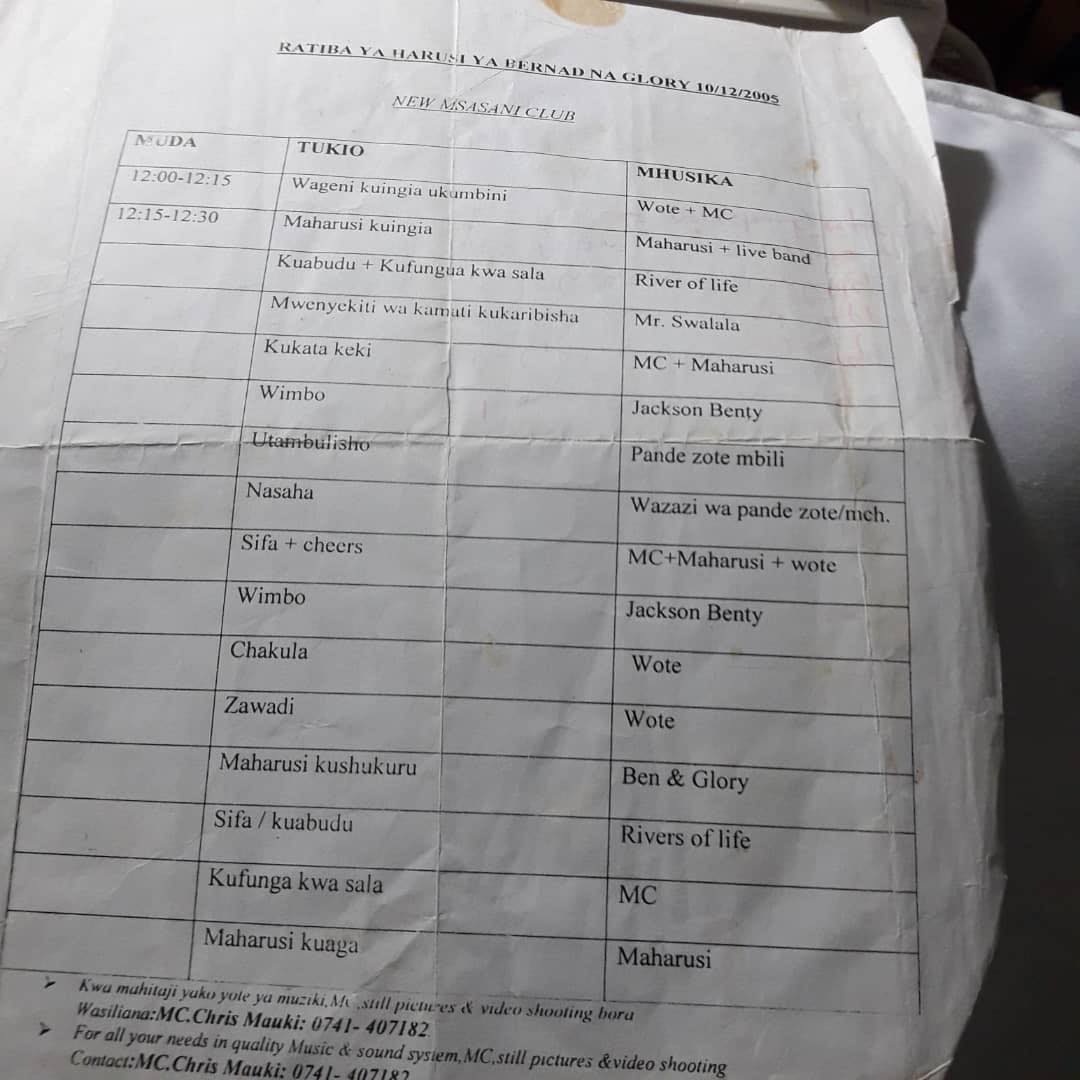 RATIBA YA HARUSI YA BERNAD NA GLORY 10/12/2005
NEW MSASANI CLUB
MUDA TUKIO MHUSIKA
12:00-12:15 Wageni kuingia ukumbini Wote + MC
12:15-12:30 Maharusi kuingia Maharusi + live band
Kuabudu + Kufungua kwa sala River of life
Mwenyekiti wa kamati kukaribisha Mr. Swalala
Kukata keki MC + Maharusi
Wimbo Jackson Benty
Utambulisho Pande zote mbili
Nasaha Wazazi wa pande zote/mch.
Sifa + cheers MC+Maharusi + wote
Wimbo Jackson Benty
Chakula Wote
Zawadi Wote
Maharusi kushukuru Ben & Glory
Sifa / kuabudu Rivers of life
Kufunga kwa sala MC
Maharusi kuaga Maharusi
➢ Kwa mahitaji yako yote ya muziki,Mc,still pictures & video shooting bora
Wasiliana:MC.Chris Mauki: 0741- 407182
➢ For all your needs in quality Music & sound system,MC,still pictures &video shooting
Contact:MC.Chris Mauki: 0741- 407182